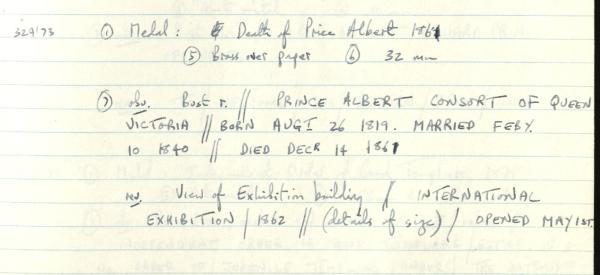 329/73 ① Medal : Death of Price Albert 1861
⑤ Brass over paper ⑥ 32 mm
⑦ obv. Bust r. // PRINCE ALBERT CONSORT OF QUEEN
VICTORIA // BORN AUGT 26 1819. MARRIED FEBY.
10 1840 // DIED DECR 14 1861
rev. View of Exhibition building / INTERNATIONAL
EXHIBITION / 1862 // (details of size) / OPENED MAY 1ST.